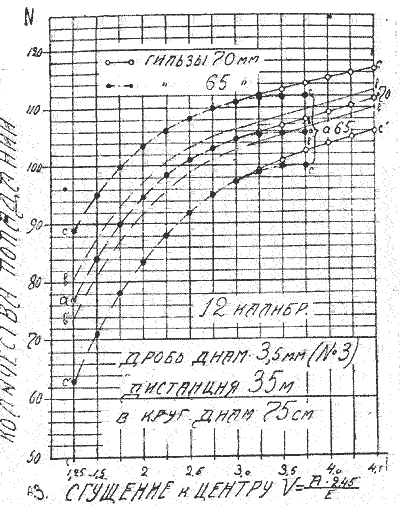 N
130
ГИЛЬЗЫ 70 мм
" 65 "
110
100
90
80
70
60
50
c
b
a
b'
c'
70
a 65
12 КАЛИБР.
ДРОБЬ ДИАМ. 3,5мм (№3)
ДИСТАНЦИЯ 35м
В КРУГ ДИАМ 75см
КОЛИЧЕСТВА ПОПАДАНИЙ
1,25 1,5 2 2,5 3,0 3,5 4,0 4,5
СГУЩЕНИЕ К ЦЕНТРУ V=